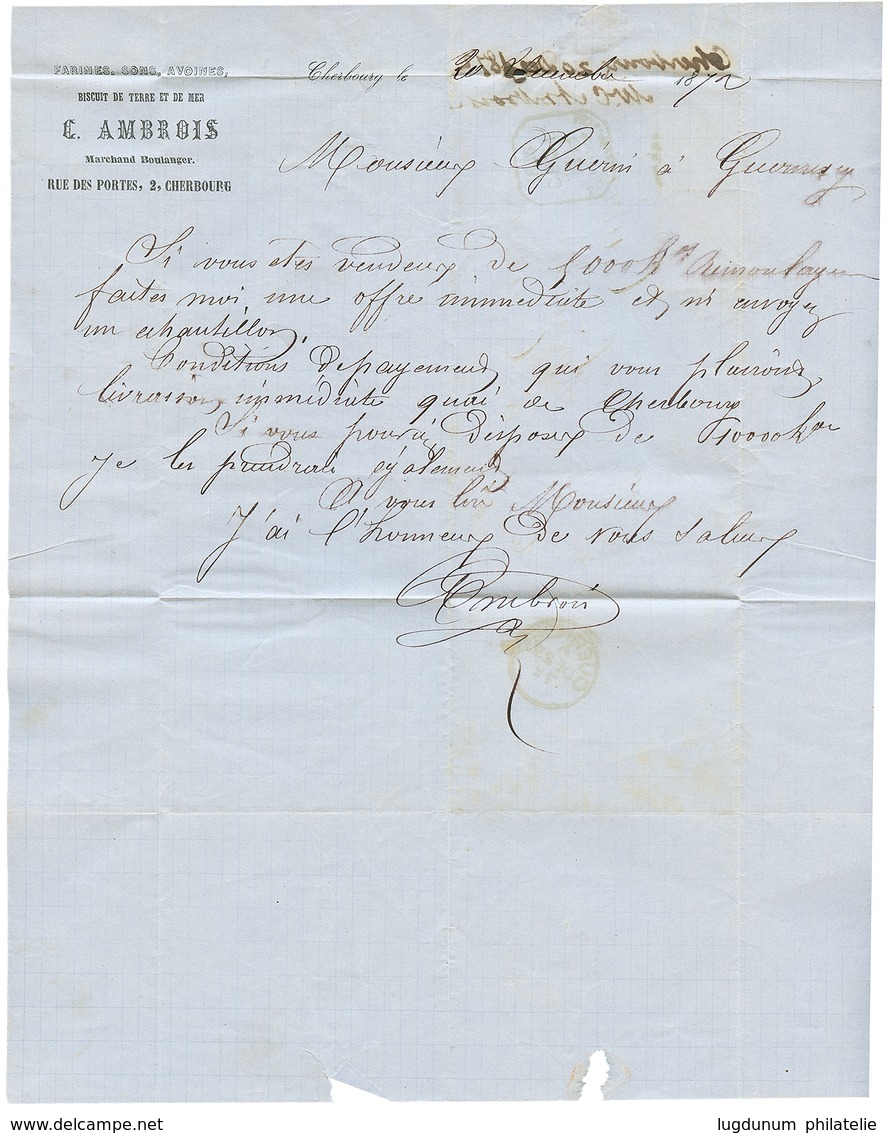 FARINES, SONS, AVOINES,
BISCUIT DE TERRE ET DE MER
C. AMBROIS
Marchand Boulanger.
RUE DES PORTES, 2, CHERBOURG
Cherbourg le 20 1872
Monsieur Guérin à Guernesey
Si vous etes vendeur de 5000 K^os Remoulage
faites moi une offre immediate et m'envoyez
un echantillon,
Conditions de payement qui vous plairont,
livraison immédiate quai de Cherbourg
Si vous pouviez disposer de 10000 K^os
Je les prendrai également
A vous lire Monsieur
J'ai l'honneur de vous saluer
Ambrois
lugdunum philatelie